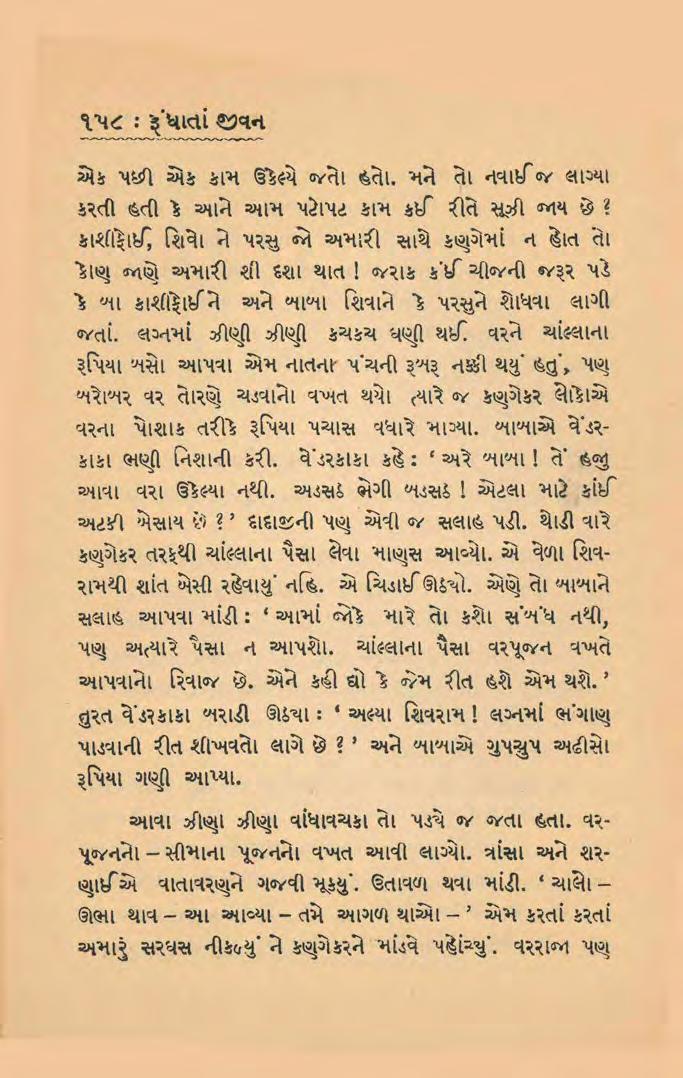 ૧૫૮ : રૂંધાતાં જીવન
એક પછી એક કામ ઉકેલ્યે જતો હતો. મને તો નવાઈ જ લાગ્યા
કરતી હતી કે આને આમ પટોપટ કામ કઈ રીતે સૂઝી જાય છે ?
કાશીફોઈ, શિવો ને પરસુ જો અમારી સાથે કણગેમાં ન હોત તો
કોણ જાણે અમારી શી દશા થાત ! જરાક કંઈ ચીજની જરૂર પડે
કે બા કાશીફોઈને અને બાબા શિવાને કે પરસુને શોધવા લાગી
જતાં. લગ્નમાં ઝીણી ઝીણી કચકચ ઘણી થઈ. વરને ચાંલ્લાના
રૂપિયા બસો આપવા એમ નાતના પંચની રૂબરૂ નક્કી થયું હતું, પણ
બરોબર વર તોરણે ચડવાનો વખત થયો ત્યારે જ કણગેકર લોકોએ
વરના પોશાક તરીકે રૂપિયા પચાસ વધારે માગ્યા. બાબાએ વેંડર-
કાકા ભણી નિશાની કરી. વેંડરકાકા કહે : ‘ અરે બાબા ! તેં હજી
આવા વરા ઉકેલ્યા નથી. અડસઠ ભેગી બડસઠ ! એટલા માટે કાંઈ
અટકી બેસાય છે ? ’ દાદાજીની પણ એવી જ સલાહ પડી. થોડી વારે
કણગેકર તરફથી ચાંલ્લાના પૈસા લેવા માણસ આવ્યો. એ વેળા શિવ-
રામથી શાંત બેસી રહેવાયું નહિ. એ ચિડાઈ ઊઠ્યો. એણે તો બાબાને
સલાહ આપવા માંડી : ‘ આમાં જોકે મારે તો કશો સંબંધ નથી,
પણ અત્યારે પૈસા ન આપશો. ચાંલ્લાના પૈસા વરપૂજન વખતે
આપવાનો રિવાજ છે. એને કહી દ્યો કે જેમ રીત હશે એમ થશે. ’
તુરત વેંડરકાકા બરાડી ઊઠ્યા : ‘ અલ્યા શિવરામ ! લગ્નમાં ભંગાણ
પાડવાની રીત શીખવતો લાગે છે ? ’ અને બાબાએ ગુપચુપ અઢીસો
રૂપિયા ગણી આપ્યા.
આવા ઝીણા ઝીણા વાંધાવચકા તો પડ્યે જ જતા હતા. વર-
પૂજનનો – સીમાના પૂજનનો વખત આવી લાગ્યો. ત્રાંસા અને શર-
ણાઈએ વાતાવરણને ગજવી મૂક્યું. ઉતાવળ થવા માંડી. ‘ ચાલો –
ઊભા થાવ – આ આવ્યા – તમે આગળ થાઓ – ’ એમ કરતાં કરતાં
અમારું સરઘસ નીકળ્યું ને કણગેકરને માંડવે પહોંચ્યું. વરરાજા પણ